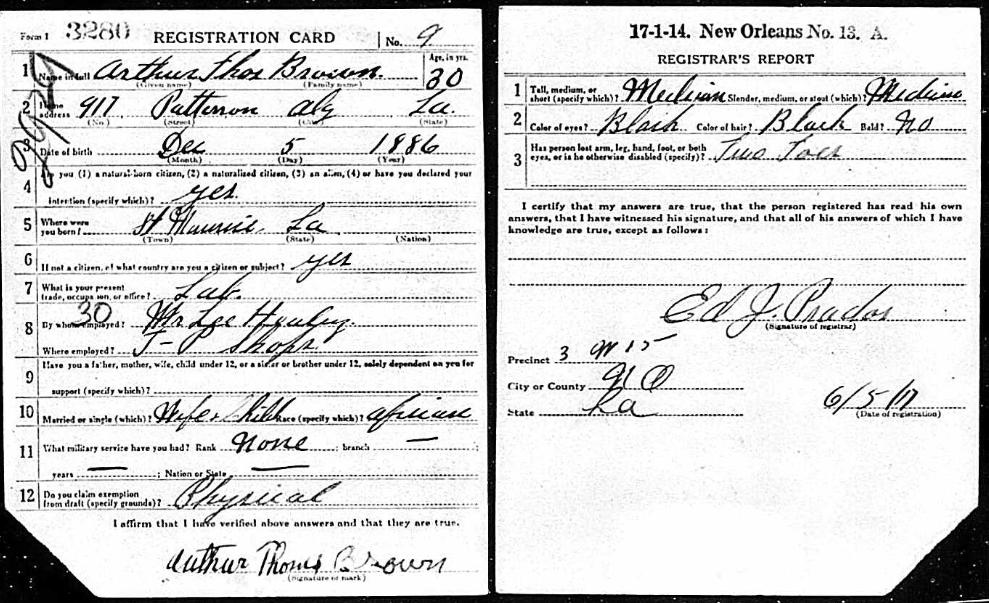 Form 1 3280 REGISTRATION CARD No. 9
1 Name in full Arthur Thos Brown Age, in yrs. 30
(Given name) (Family name)
2 Home address 917 Patterson Alg La
(No.) (Street) (City) (State)
3 Date of birth Dec 5 1886
(Month) (Day) (Year)
4 Are you (1) a natural-born citizen, (2) a naturalized citizen, (3) an alien, (4) or have you declared your
intention (specify which)? yes
5 Where were you born? St Maurice La
(Town) (State) (Nation)
6 If not a citizen, of what country are you a citizen or subject? yes
7 What is your present trade, occupation, or office? Lab.
30
8 By whom employed? Mr Lee
Where employed? T-P Shops
9 Have you a father, mother, wife, child under 12, or a sister or brother under 12, solely dependent on you for
support (specify which)?
10 Married or single (which)? Wife & Child Race (specify which)? African
11 What military service have you had? Rank None ; branch —
years — ; Nation or State —
12 Do you claim exemption from draft (specify grounds)? Physical
I affirm that I have verified above answers and that they are true.
Arthur Thoms Brown
(Signature or mark)
17-1-14. New Orleans No. 13. A.
REGISTRAR'S REPORT
1 Tall, medium, or short (specify which)? Medium Slender, medium, or stout (which)? Medium
2 Color of eyes? Black Color of hair? Black Bald? No
3 Has person lost arm, leg, hand, foot, or both eyes, or is he otherwise disabled (specify)? Two Toes
I certify that my answers are true, that the person registered has read his own
answers, that I have witnessed his signature, and that all of his answers of which I have
knowledge are true, except as follows:
Ed J. Prados
(Signature of registrar)
Precinct 3 W 15
City or County N O
State La
6/5/17
(Date of registration)